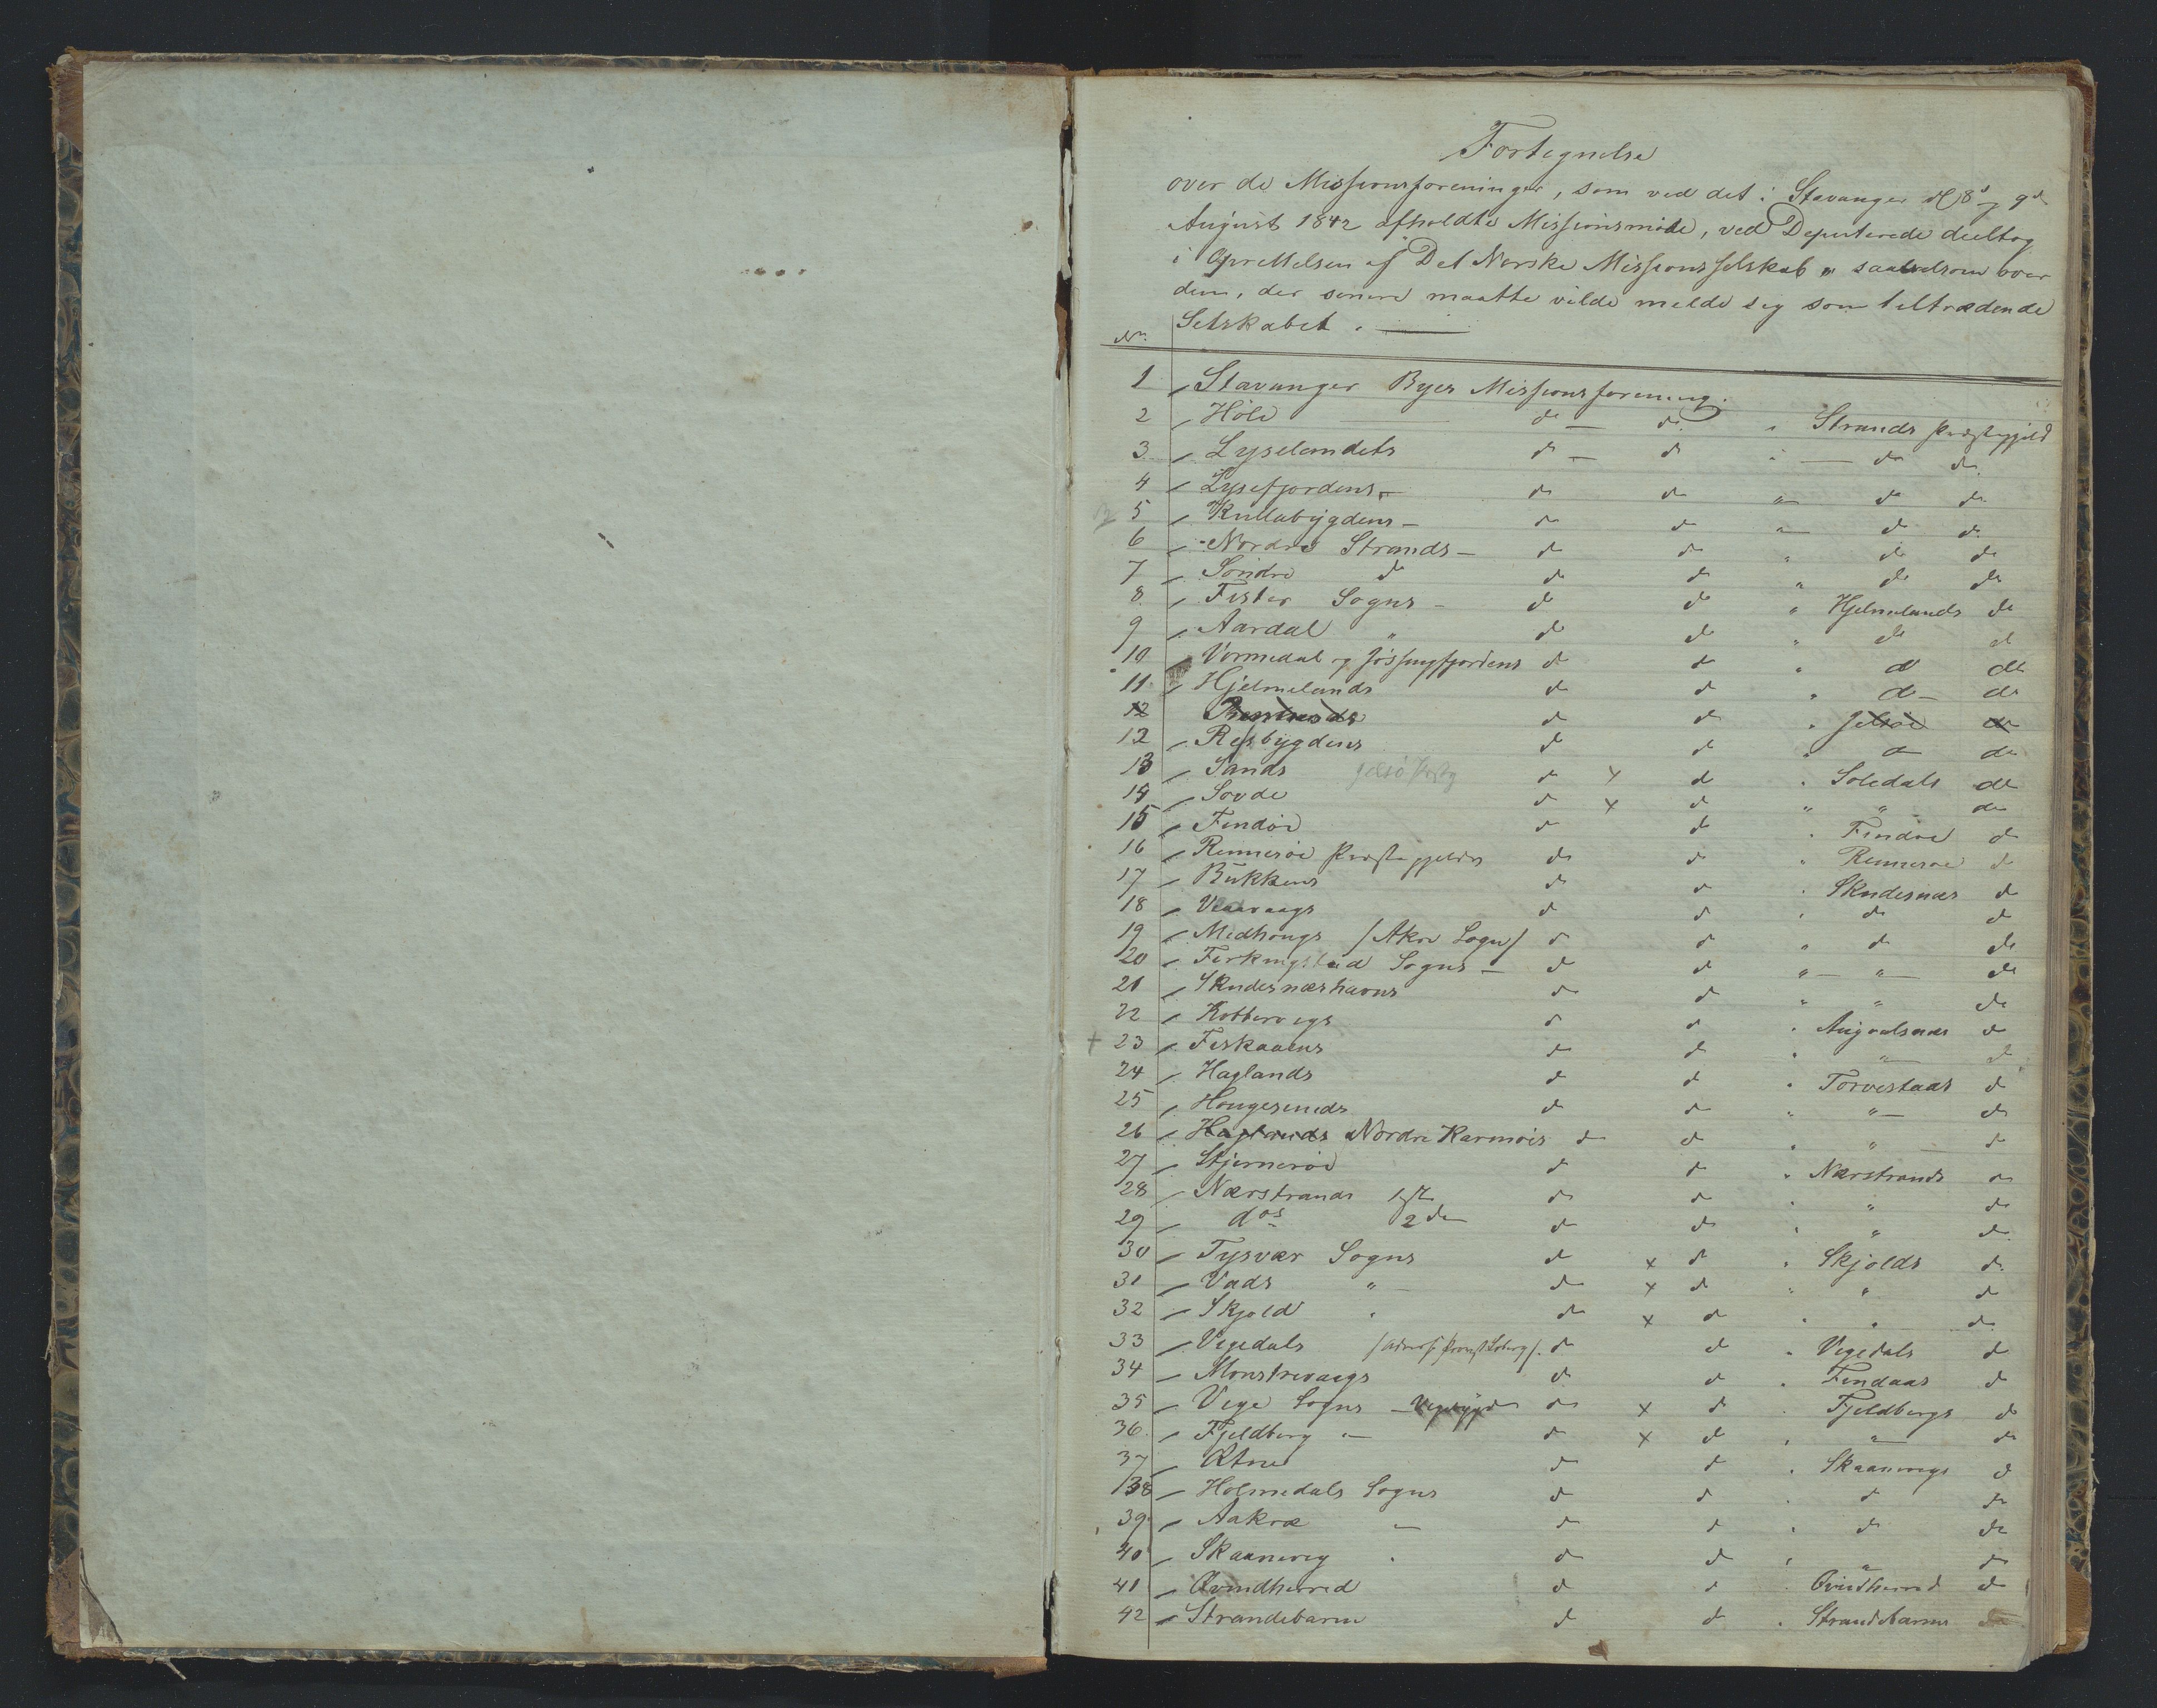 Fortegnelse
over de Missionsforeninger, som ved det i Stavanger d 8d og 9d
August 1842 afholdte Missionsmöde, ved Deputerede deeltog
i Oprettelsen af "Det Norske Missionsselskab" saavelsom over
dem, der senere maatte vilde melde sig som tiltrædende
Selskabet.
No
1 Stavanger Byes Missionsforening.
2 Höle do do " Strands Præstegjeld
3 Lyselandets do do " do do
4 Lysefjordens do do " do do
5 Kullabygdens do do " do do
6 Nordre Strands do do " do do
7 Söndre do do do " do do
8 Fister Sogns do do " Hjelmelands do
9 Aardal " do do " do do
10 Vormedal og Jössingfjordens do do " do do
11 Hjelmelands do do " do do
12 do do " Jelsöe do
12 Residbygdens do do " do do
13 Sands Jelsö Prstg do x do " Soledals do
14 Sovde do x do " " do
15 Findöe do do " Findöe do
16 Rennesöe Præstegjelds do do " Rennesöe do
17 Bukkens do do " Skudesnæs do
18 Veavaags do do " do do
19 Medhougs /Akre Sogn/ do do " do do
20 Ferkingstad Sogns do do " " do
21 Skudesnæshavns do do " " do
22 Kobbervigs do do " Augvalsnæs do
23 Feskaaens do do " " do
24 Haglands do do " Torvestads do
25 Hougesunds do do " " do
26 Haglands Nordre Karmöes do do " " do
27 Stjerneröe do do " Nærstrands do
28 Nærstrands 1ste do do " " do
29 dos 2den do do " " do
30 Tysvær Sogns do x do " Skjolds do
31 Vads " do x do " " do
32 Skjold " do x do " " do
33 Vigedals do do " Vigedals do
34 Monstrevaags do do " Findaas do
35 Vige Sogns do x do " Fjeldbergs do
36 Fjeldberg " do x do " " do
37 Etne do do " Skaanevigs do
38 Holmedals Sogns do do " do do
39 Aakræ " do do " do do
40 Skaanevig " do do " " do
41 Qvindherred do do " Qvindherred do
42 Strandebarm do do " Strandebarms do